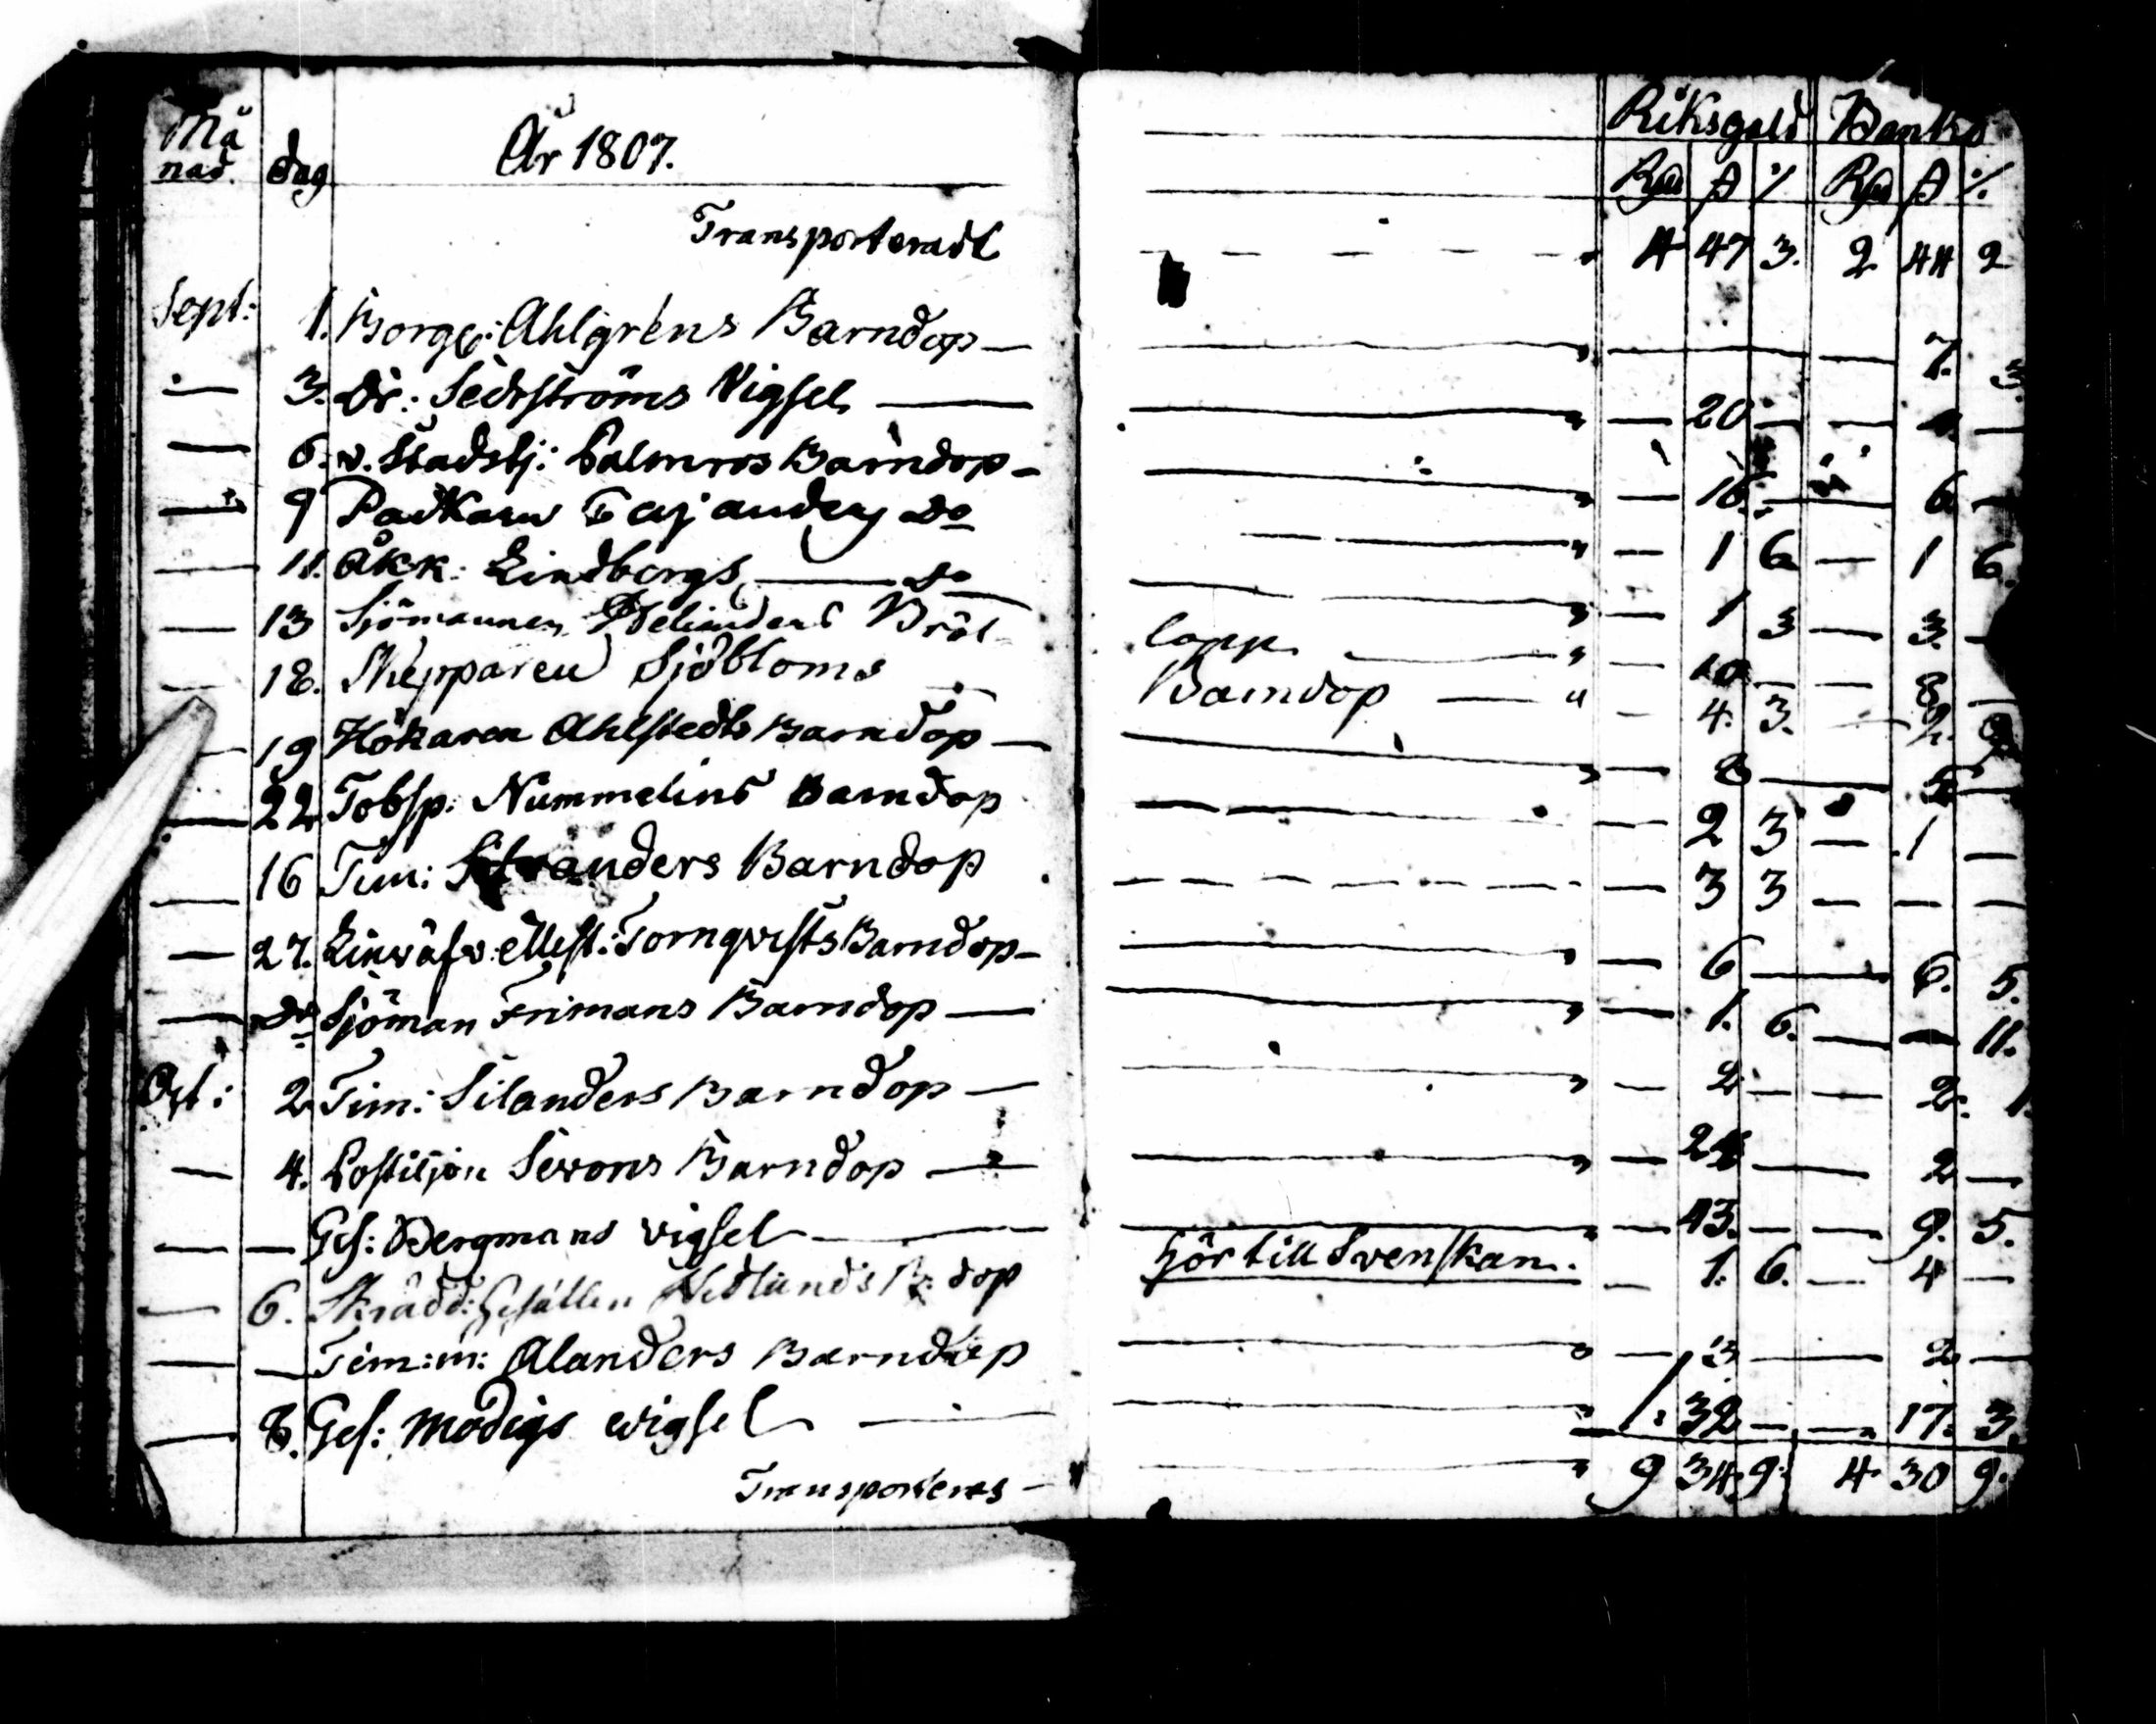 Må
nad. dag År 1807. Riksgäld Banko
Rd ß % Rd ß %
Transporteradt 4 47 3. 2 44 2
Sept: 1. Borge: Ahlgrens Barndop — 7. 3.
— 3. Dr: Sederströms Vigsel — 20 — — 4. —
— 6. v. Stadsbj: Palmros Barndop — 16. — 6. —
— 9 Packaren do — 1 6 — 1 6.
— 11. Åkk: Lindbergs — do — 1 3 — 3. —
— 13 Sjömannen Bröl- lopp — 10 — — 8 —
— 18. Skepparen Sjöbloms Barndop — " — 4. 3. — 9
— 19 Hökaren Ahlstedts Barndop — 8 — 5 —
— 22 Tobsp: Nummelins Barndop — 2 3 — 1 —
— 16 Tim: Stranders Barndop — 3 3 — — —
— 27. Linväfv. Mest: Tornqvists Barndop — 6 — 6. 5.
— do Sjöman Frimans Barndop — 1. 6. — — 11.
Oct: 2 Tim: Silanders Barndop — 2 — — 2. 1
— 4. Postiljon Sevons Barndop — 24 — 2 —
— — Ges: Bergmans vigsel — 43. — — 9. 5.
— 6. Skrädd: Gesällen Nedlunds B: dop hör till Svenskan. — 1. 6. — 4 —
— — Tim: m: Alanders Barndop — 3 — 2 —
— 8. Ges: Modigs wigsel — 1: 32 — — 17. 3.
Transporteres — 9 34. 9: 4 30 9.